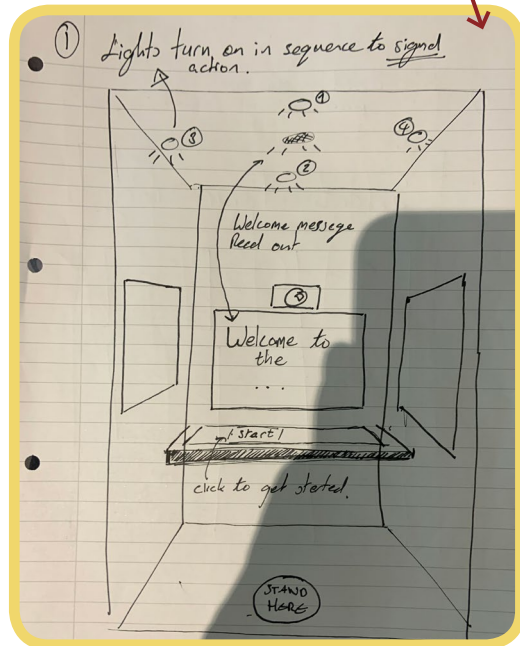 ①
Lights turn on in sequence to signal
action.
①
③
④
②
Welcome message
Read out
Welcome to
the
...
start
click to get started.
STAND
HERE